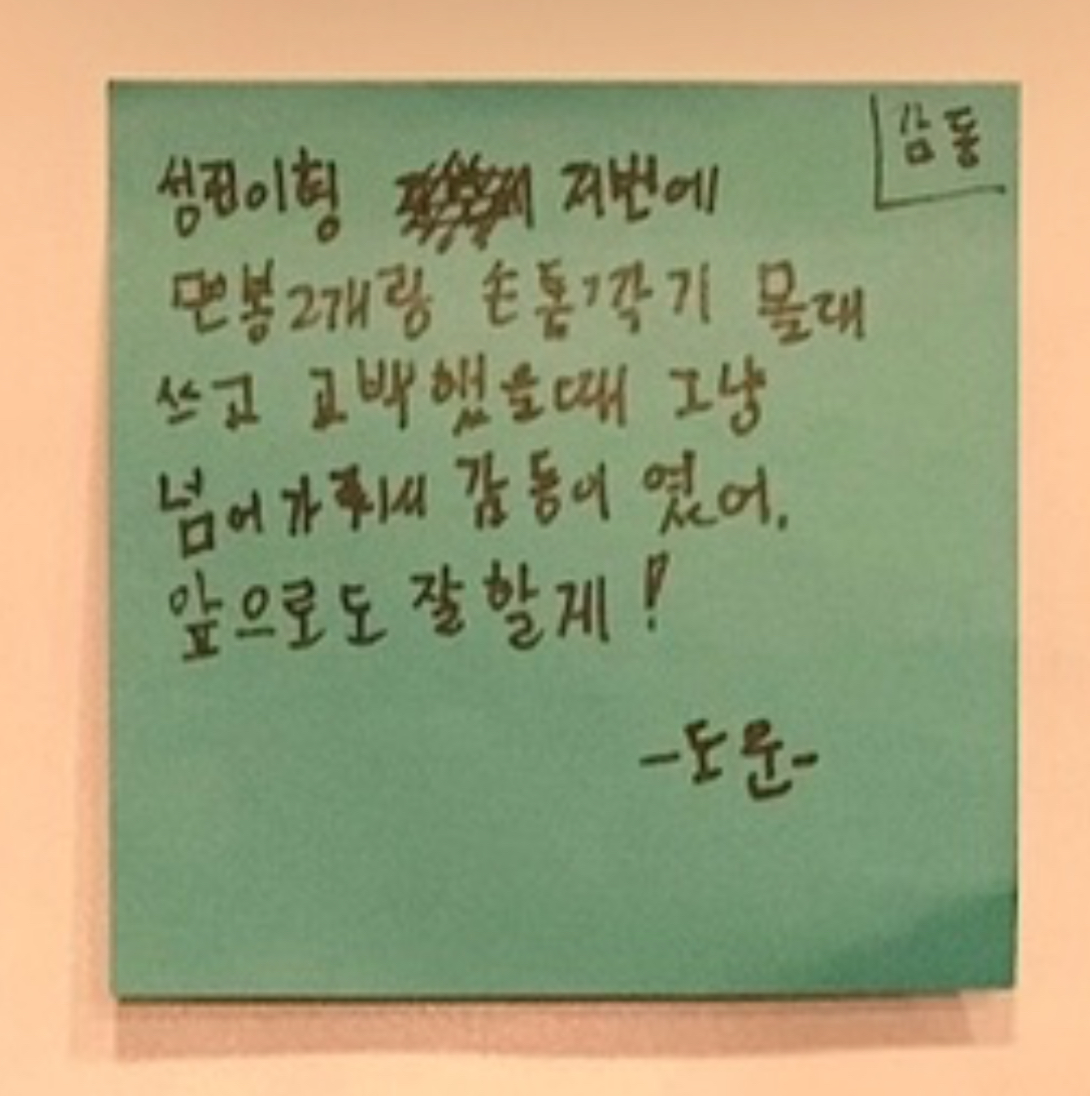 감동
성진이형 저번에
면봉2개랑 손톱깎기 몰대
쓰고 고백했을때 그냥
넘어가줘서 감동이 였어.
앞으로도 잘할게!
-도운-